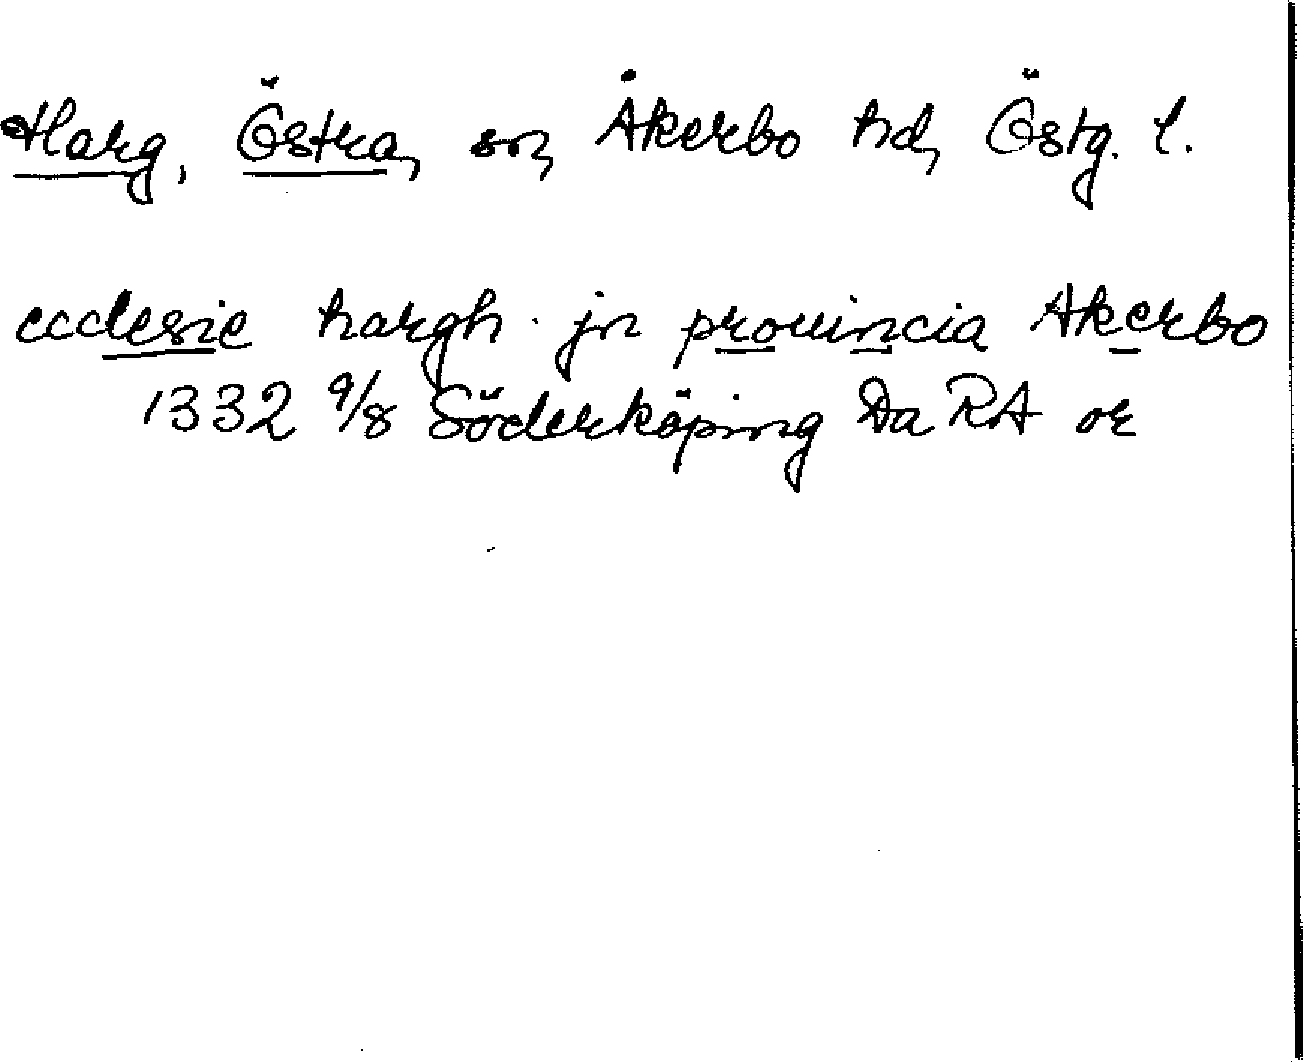 Harg, Östra, sn, Åkerbo hd, Östg. l.
ecclesie hargh. jn prouincia Akerbo
1332 9/8 Söderköping Da RA or